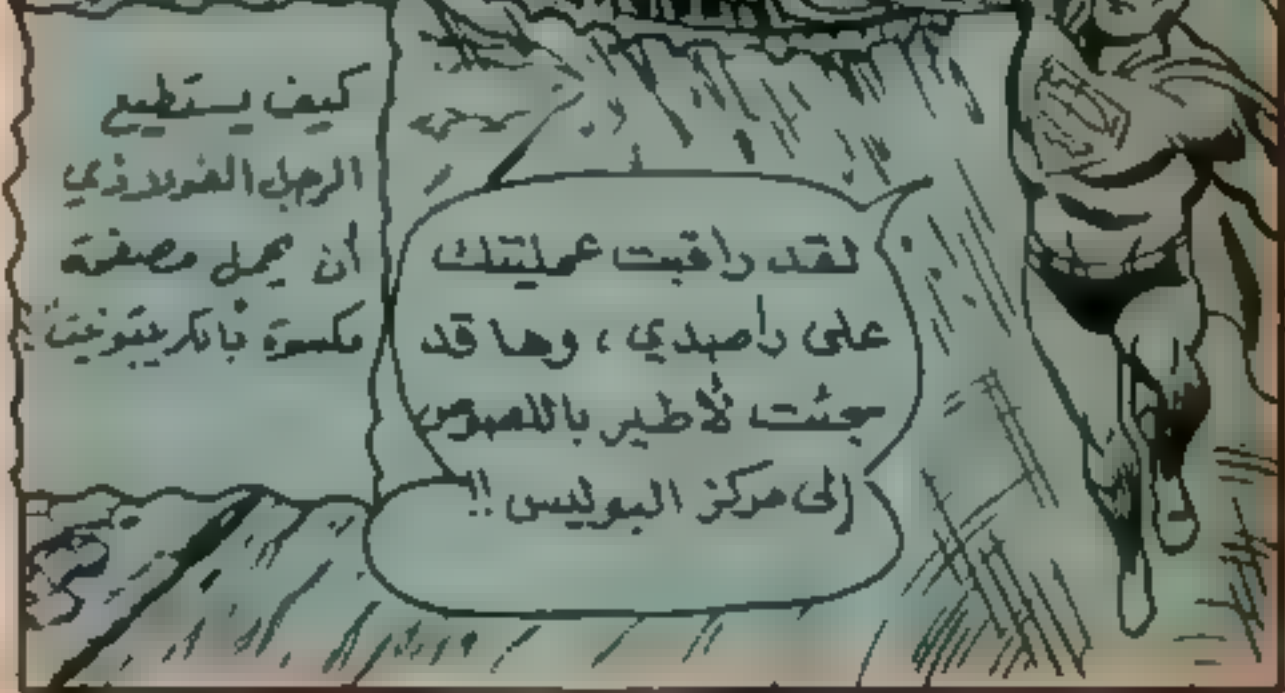 كيف يستطيع
الرجل الفولاذي
أن يحمل مصفحة
مكسوة بالكريبتونيت؟
لقد راقبت عمليتك
على راصدي، وها قد
جئت لأطير باللصوص
إلى مركز البوليس!!